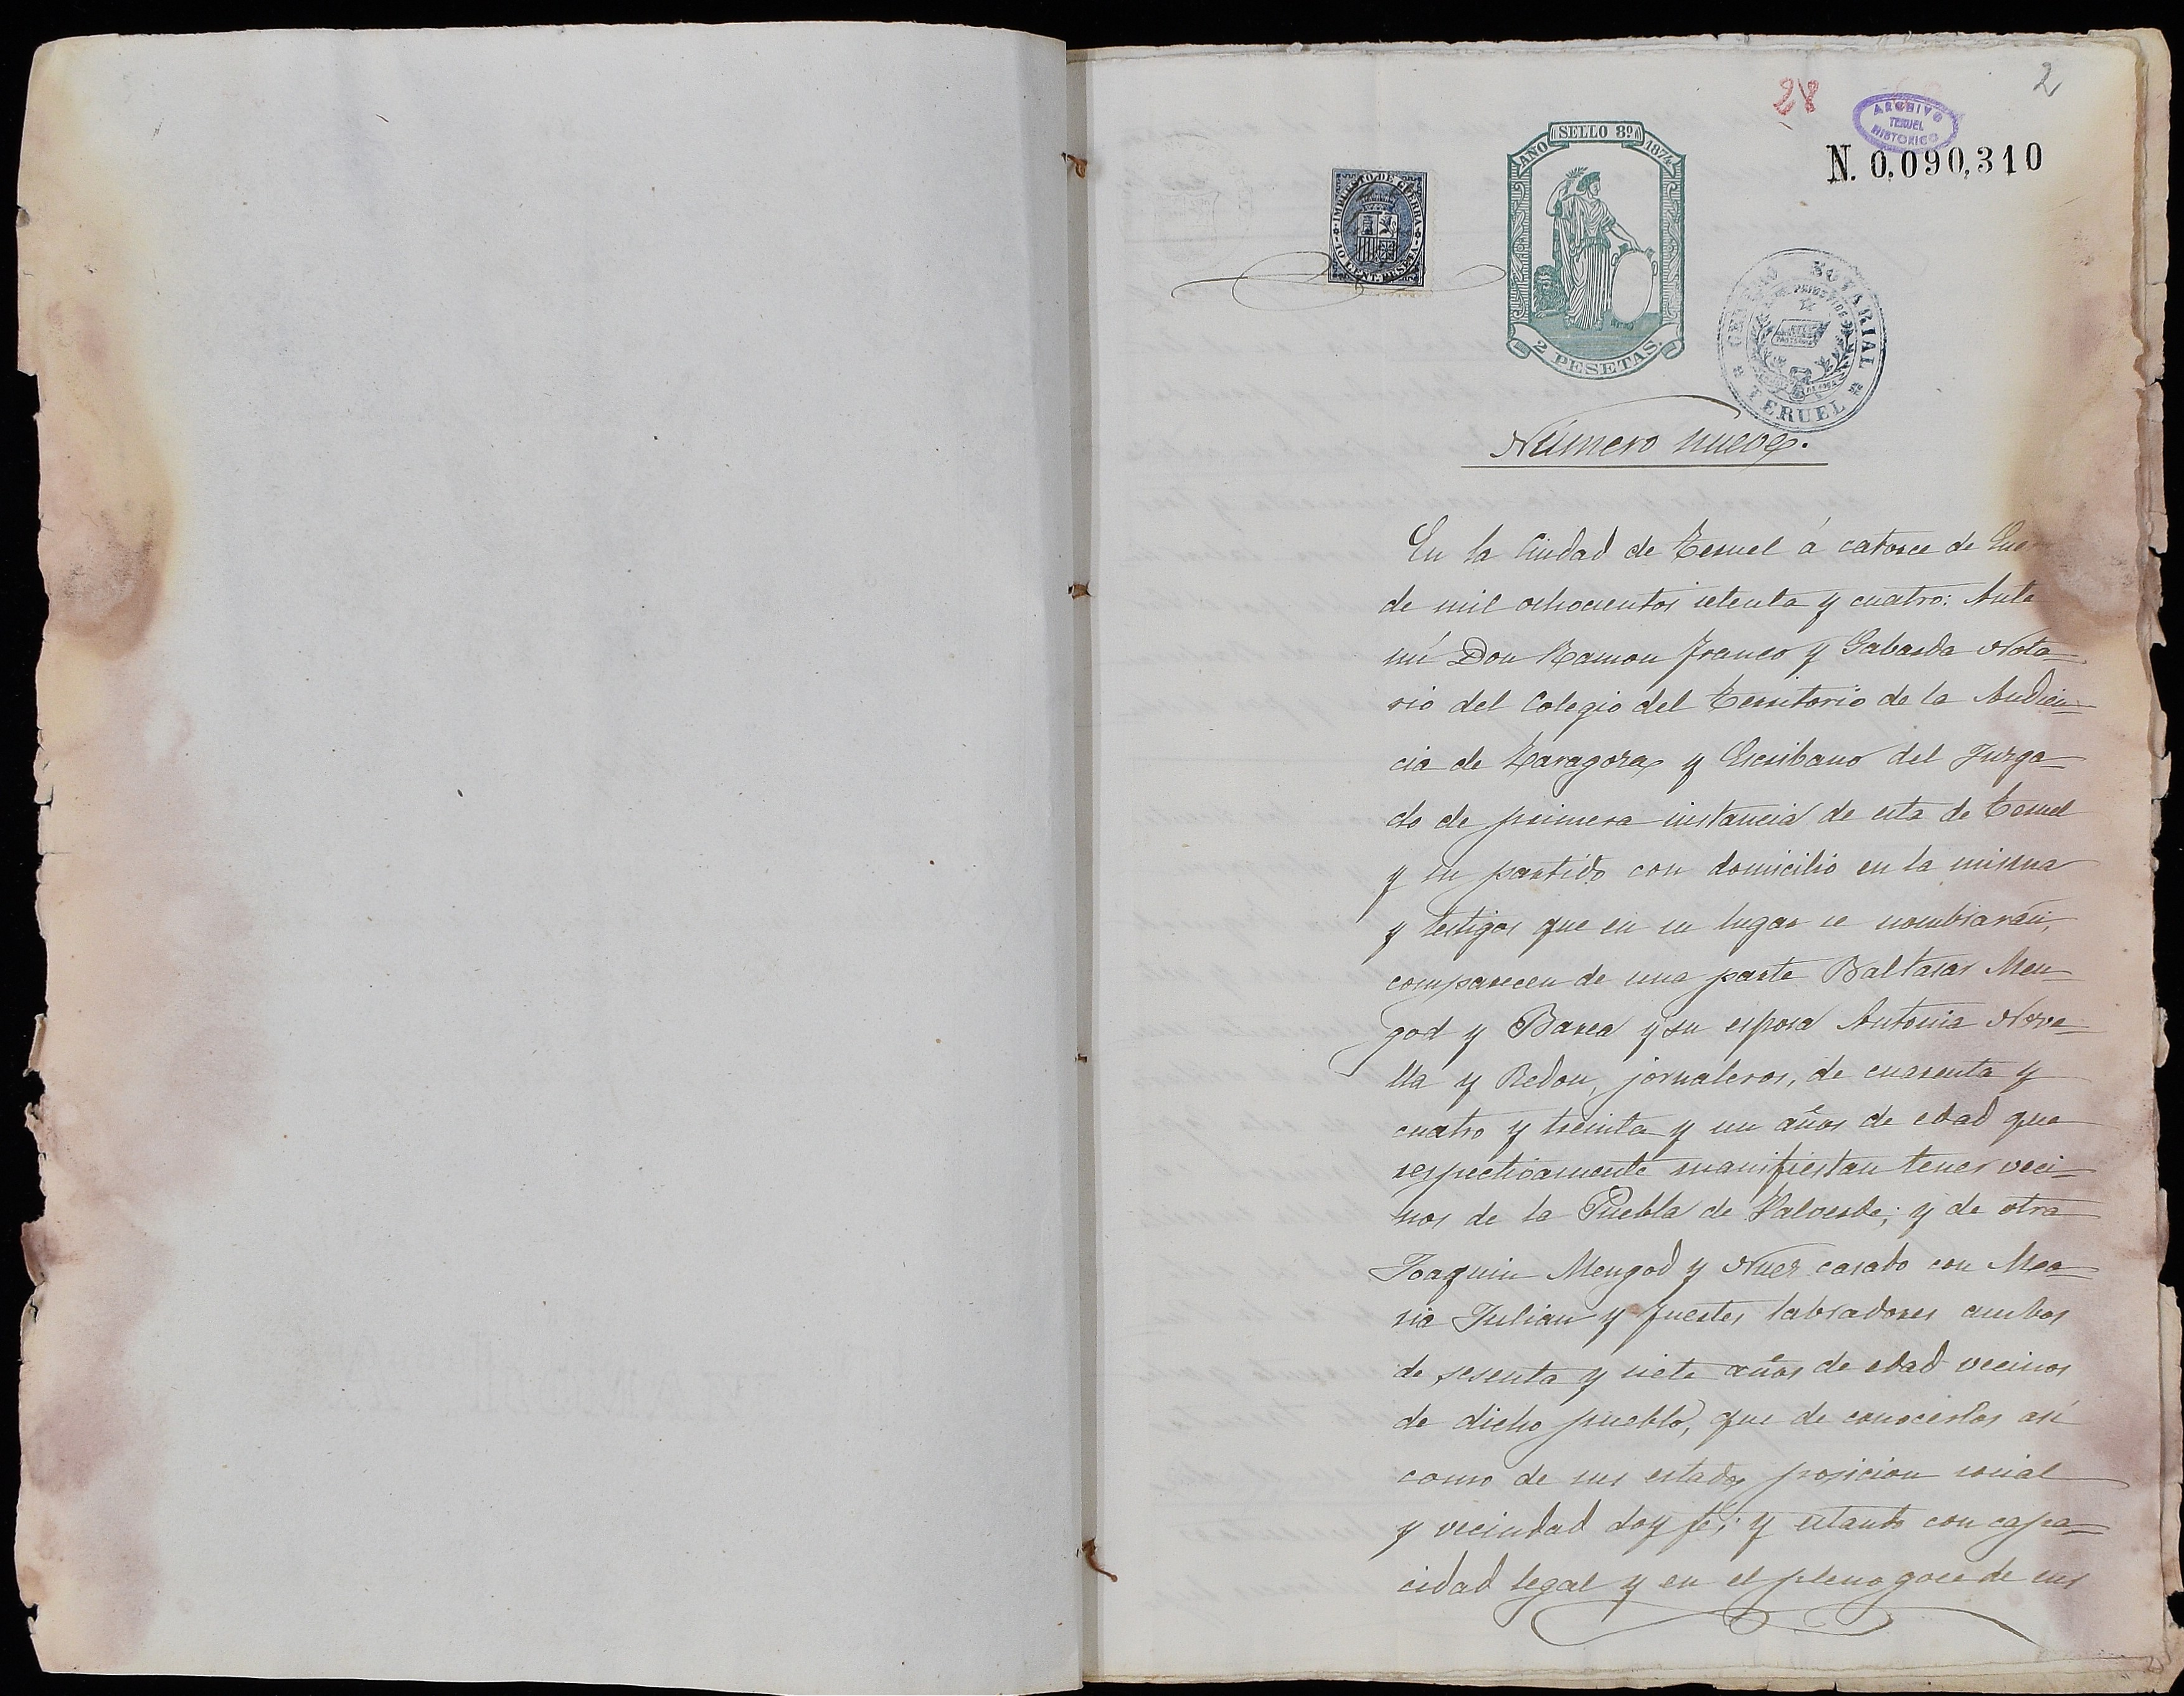 28
2
ARCHIVO
TERUEL
HISTORICO
N. 0,090,310
SELLO 8º
AÑO 1874
2 PESETAS.
IMPUESTO DE GUERRA
10 CENT. PESETA
NOTARIAL
TERUEL
Número nueve.
En la Ciudad de Teruel á catorce de Ener
de mil ochocientos setenta y cuatro: Ante
mi Don Ramon Franco y Gabarda Nota-
rio del Colegio del Territorio de la Audien-
cia de Zaragoza y Escribano del Juzga-
do de primera instancia de esta de Teruel
y su partido con domicilio en la misma
y testigos que en su lugar se nombrarán,
comparecen de una parte Baltasar Men-
god y Barea y su esposa Antonia Nove-
lla y Redon, jornaleros, de cuarenta y
cuatro y treinta y un años de edad que
respectivamente manifiestan tener veci-
nos de la Puebla de Valverde; y de otra
Joaquin Mengod y Nuez casado con Ma-
ria Julian y Fuertes labradores ambos
de sesenta y siete años de edad vecinos
de dicho pueblo, que de conocerlos así
como de sus estados posicion social
y vecindad doy fé; y estando con capa-
cidad legal y en el pleno goce de sus